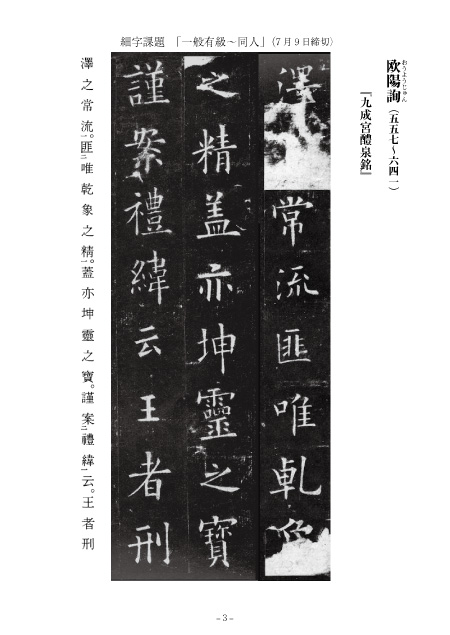 細字課題 「一般有級～同人」(7月9日締切)
欧陽詢(五五七～六四一)
おうようじゅん
『九成宮醴泉銘』
澤 常流匪唯乹
之精盖亦坤靈之寶
謹案禮緯云王者刑
澤之常流。匪二唯乾象之精一。蓋亦坤靈之寶。謹案二禮緯一云。王者刑
－3－